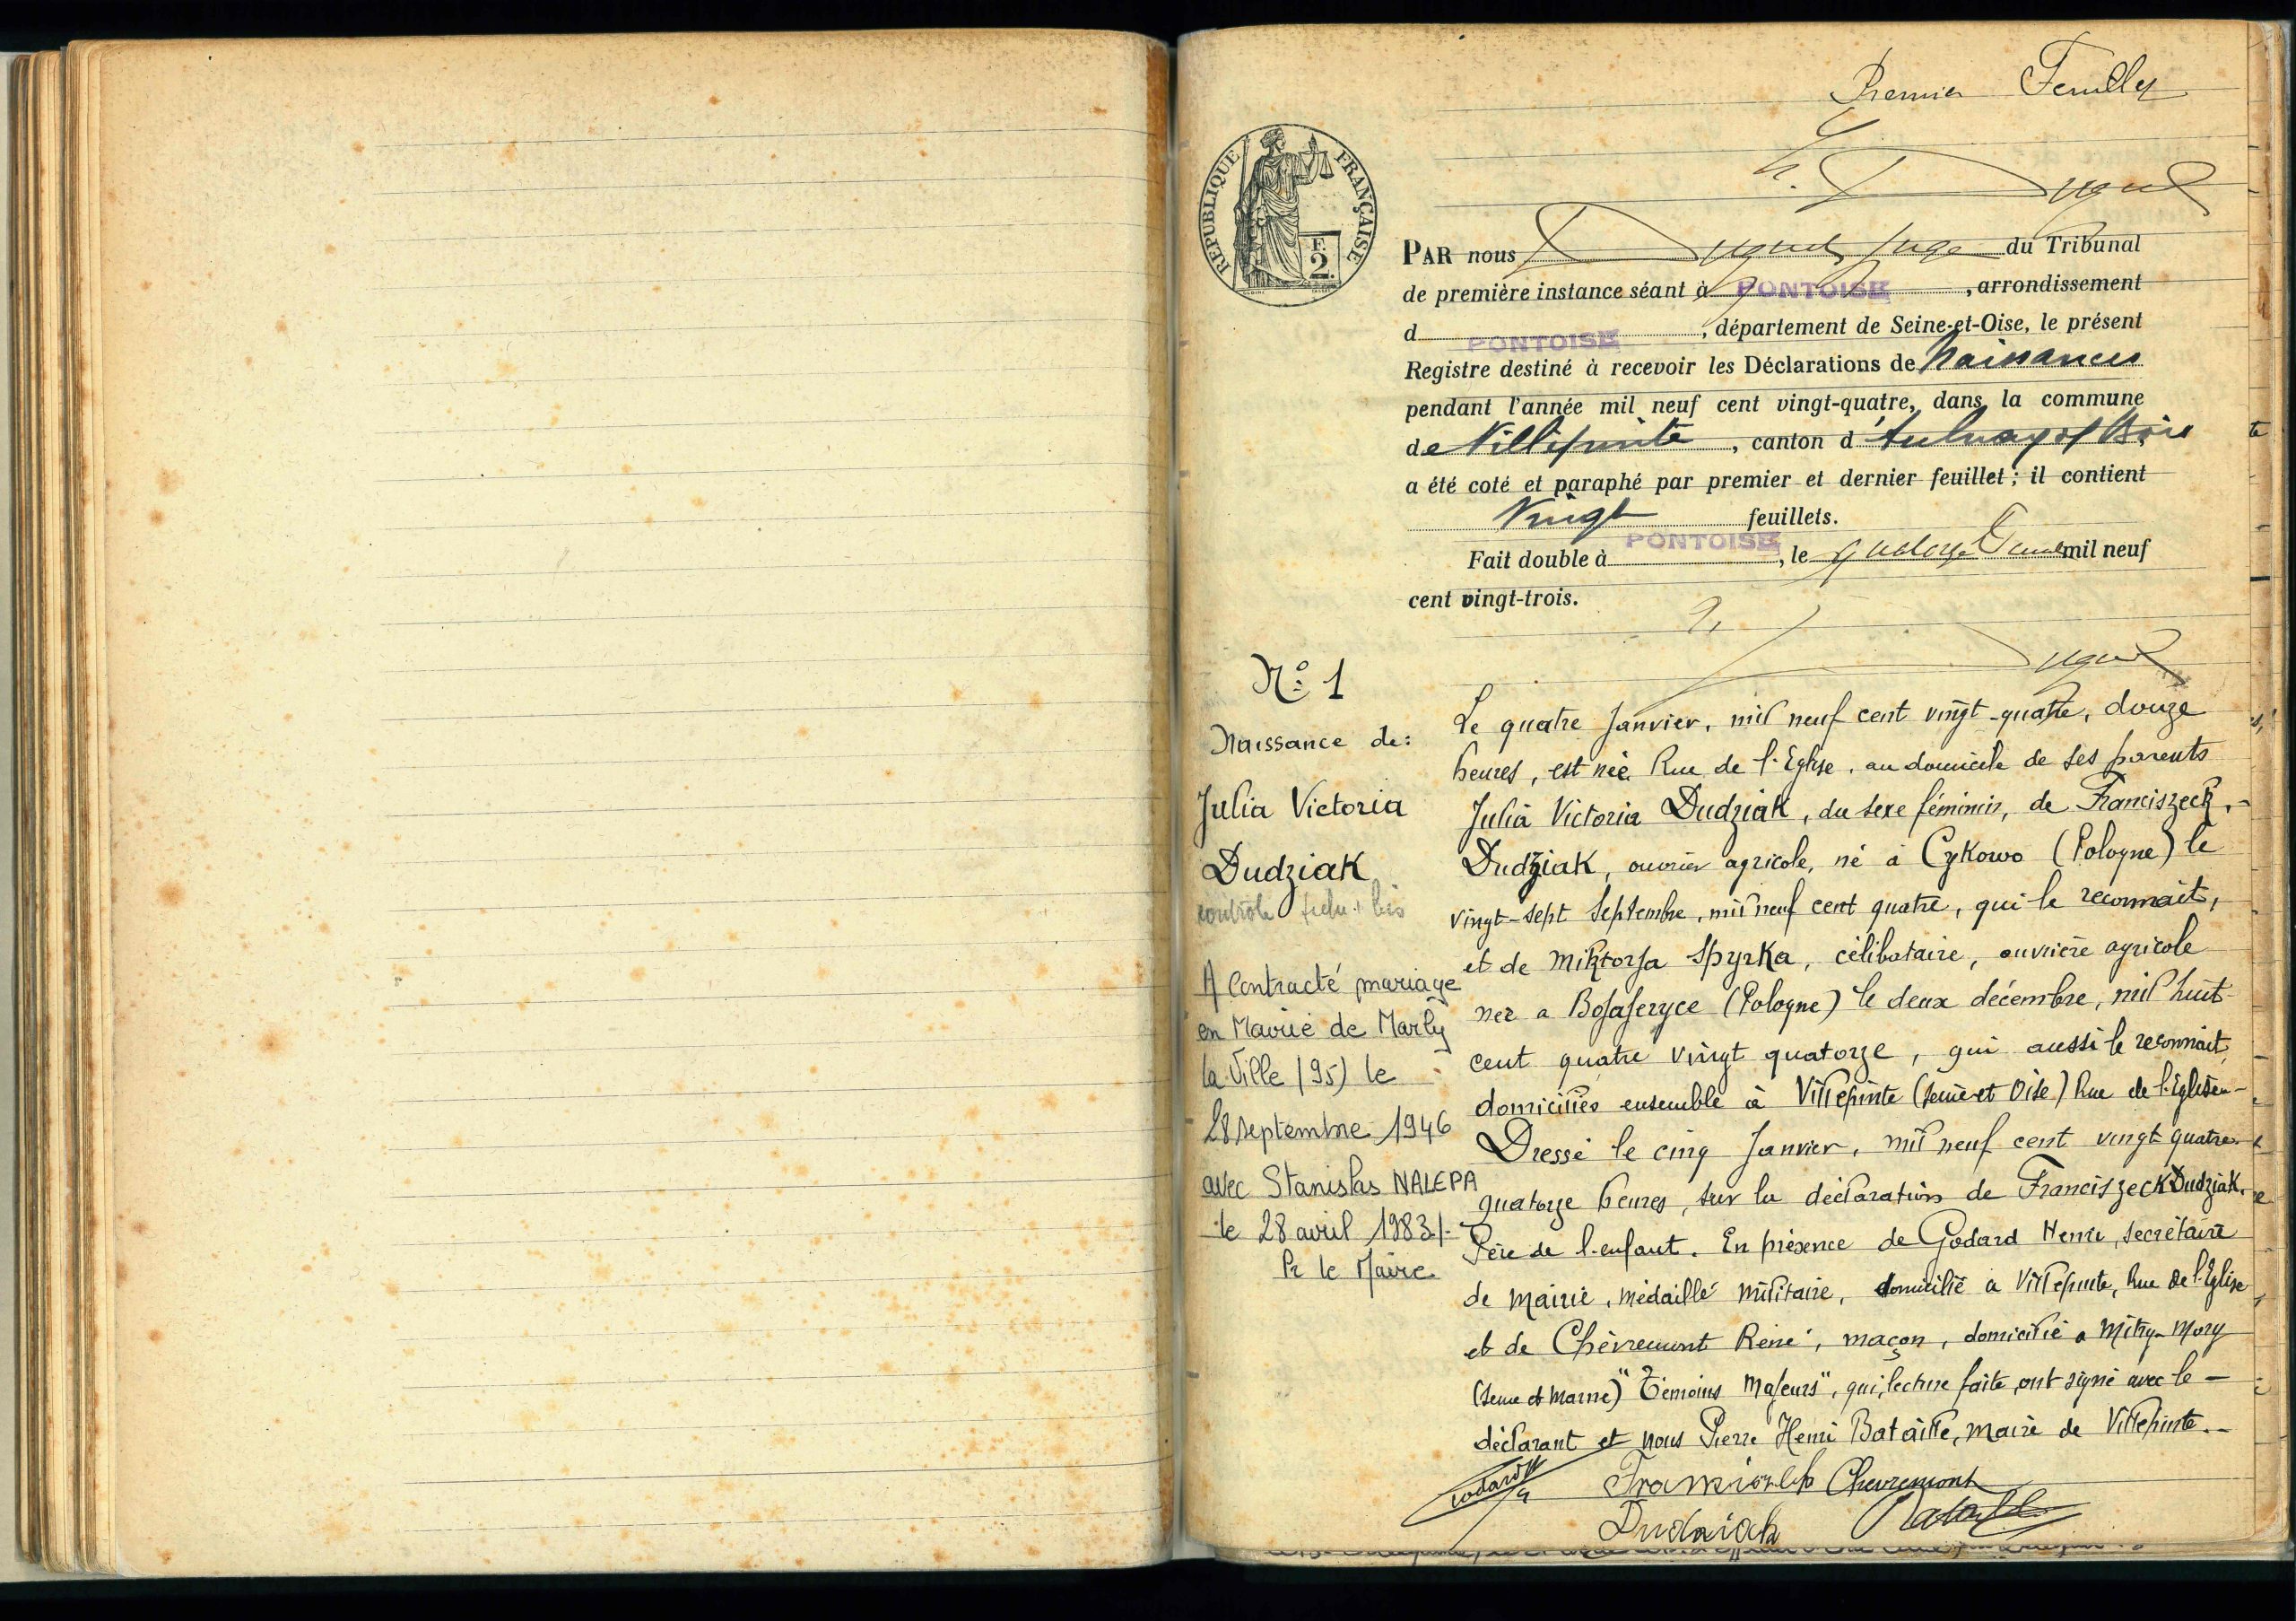 Premier Feuillet
REPUBLIQUE FRANÇAISE
F.
2.
PAR nous Duguet Juge du Tribunal
de première instance séant à PONTOISE, arrondissement
d PONTOISE, département de Seine-et-Oise, le présent
Registre destiné à recevoir les Déclarations de Naissances
pendant l'année mil neuf cent vingt-quatre, dans la commune
de Villepinte, canton d'Aulnay s/ Bois
a été coté et paraphé par premier et dernier feuillet ; il contient
Vingt feuillets.
Fait double à PONTOISE, le mil neuf
cent vingt-trois.
No 1
Naissance de:
Julia Victoria
Dudziak
contrôle
A contracté mariage
en Mairie de Marly
la Ville (95) le
28 septembre 1946
avec Stanislas NALEPA
le 28 avril 1983 /.
Pr le Maire
Le quatre Janvier, mil neuf cent vingt-quatre, douze
heures, est née Rue de l'Eglise, au domicile de ses parents
Julia Victoria Dudziak, du sexe féminin, de Franciszeck,-
Dudziak, ouvrier agricole, né à Cykowo (Pologne) le
vingt-sept Septembre, mil neuf cent quatre, qui le reconnait,
et de Miktorja Spyrka, célibataire, ouvrière agricole
née a Bojaseryce (Pologne) le deux décembre, mil huit-
cent quatre vingt quatorze, qui aussi le reconnait
domiciliés ensemble à Villepinte (Seine et Oise) Rue de l'Eglise.-
Dressé le cinq Janvier, mil neuf cent vingt quatre.
quatorze heures, sur la déclaration de Franciszeck Dudziak.
Père de l'enfant. En présence de Godard Henri, secrétaire
de mairie, médaillé militaire, domicilié a Villepinte, Rue de l'Eglise
et de Chèvremont René, maçon, domicilié a Mitry-Mory
(Seine et Marne) "Témoins Majeurs", qui, lecture faite, ont signé avec le -
déclarant et nous Pierre Henri Bataille, maire de Villepinte.-
Godard H Franciszek Chevremont
Dudziak Bataille